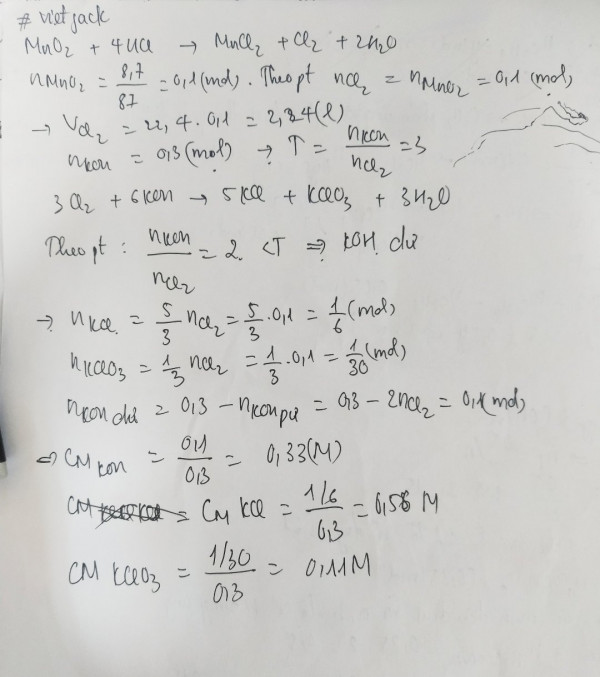 # vietjack
MnO₂ + 4HCl → MnCl₂ + Cl₂ + 2H₂O
nMnO₂ = 8,7/87 = 0,1 (mol). Theo pt nCl₂ = nMnO₂ = 0,1 (mol)
→ VCl₂ = 22,4 . 0,1 = 2,24 (l)
nKOH = 0,3 (mol) → T = nKOH/nCl₂ = 3
3Cl₂ + 6KOH → 5KCl + KClO₃ + 3H₂O
Theo pt : nKOH/nCl₂ = 2 < T ⇒ KOH dư
→ nKCl = 5/3 nCl₂ = 5/3 . 0,1 = 1/6 (mol)
nKClO₃ = 1/3 nCl₂ = 1/3 . 0,1 = 1/30 (mol)
nKOH dư = 0,3 - nKOH pư = 0,3 - 2nCl₂ = 0,1 (mol)
⇒ CM KOH = 0,1/0,3 = 0,33 (M)
CM KCl = 1/6/0,3 = 0,56 M
CM KClO₃ = 1/30/0,3 = 0,11 M